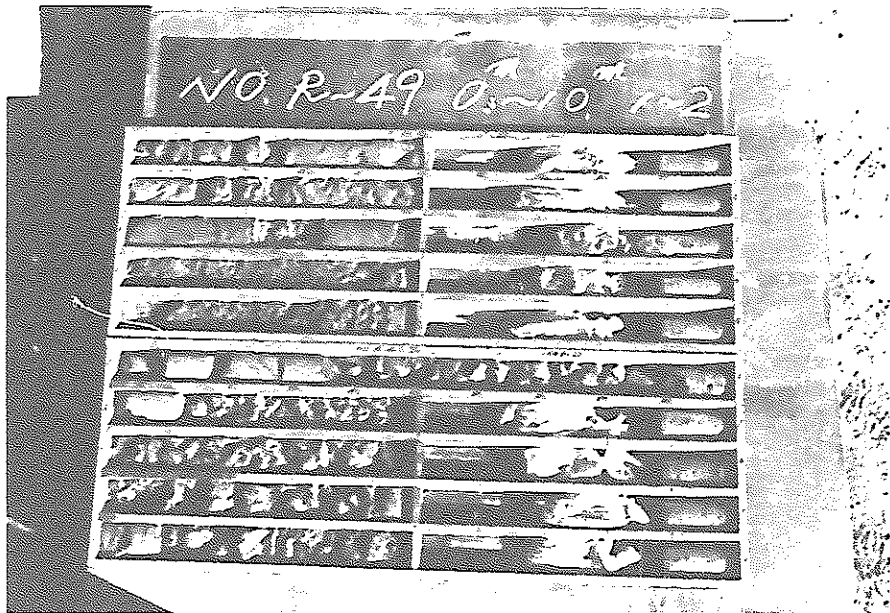 NO. R-49 0.m~10.m 1~2